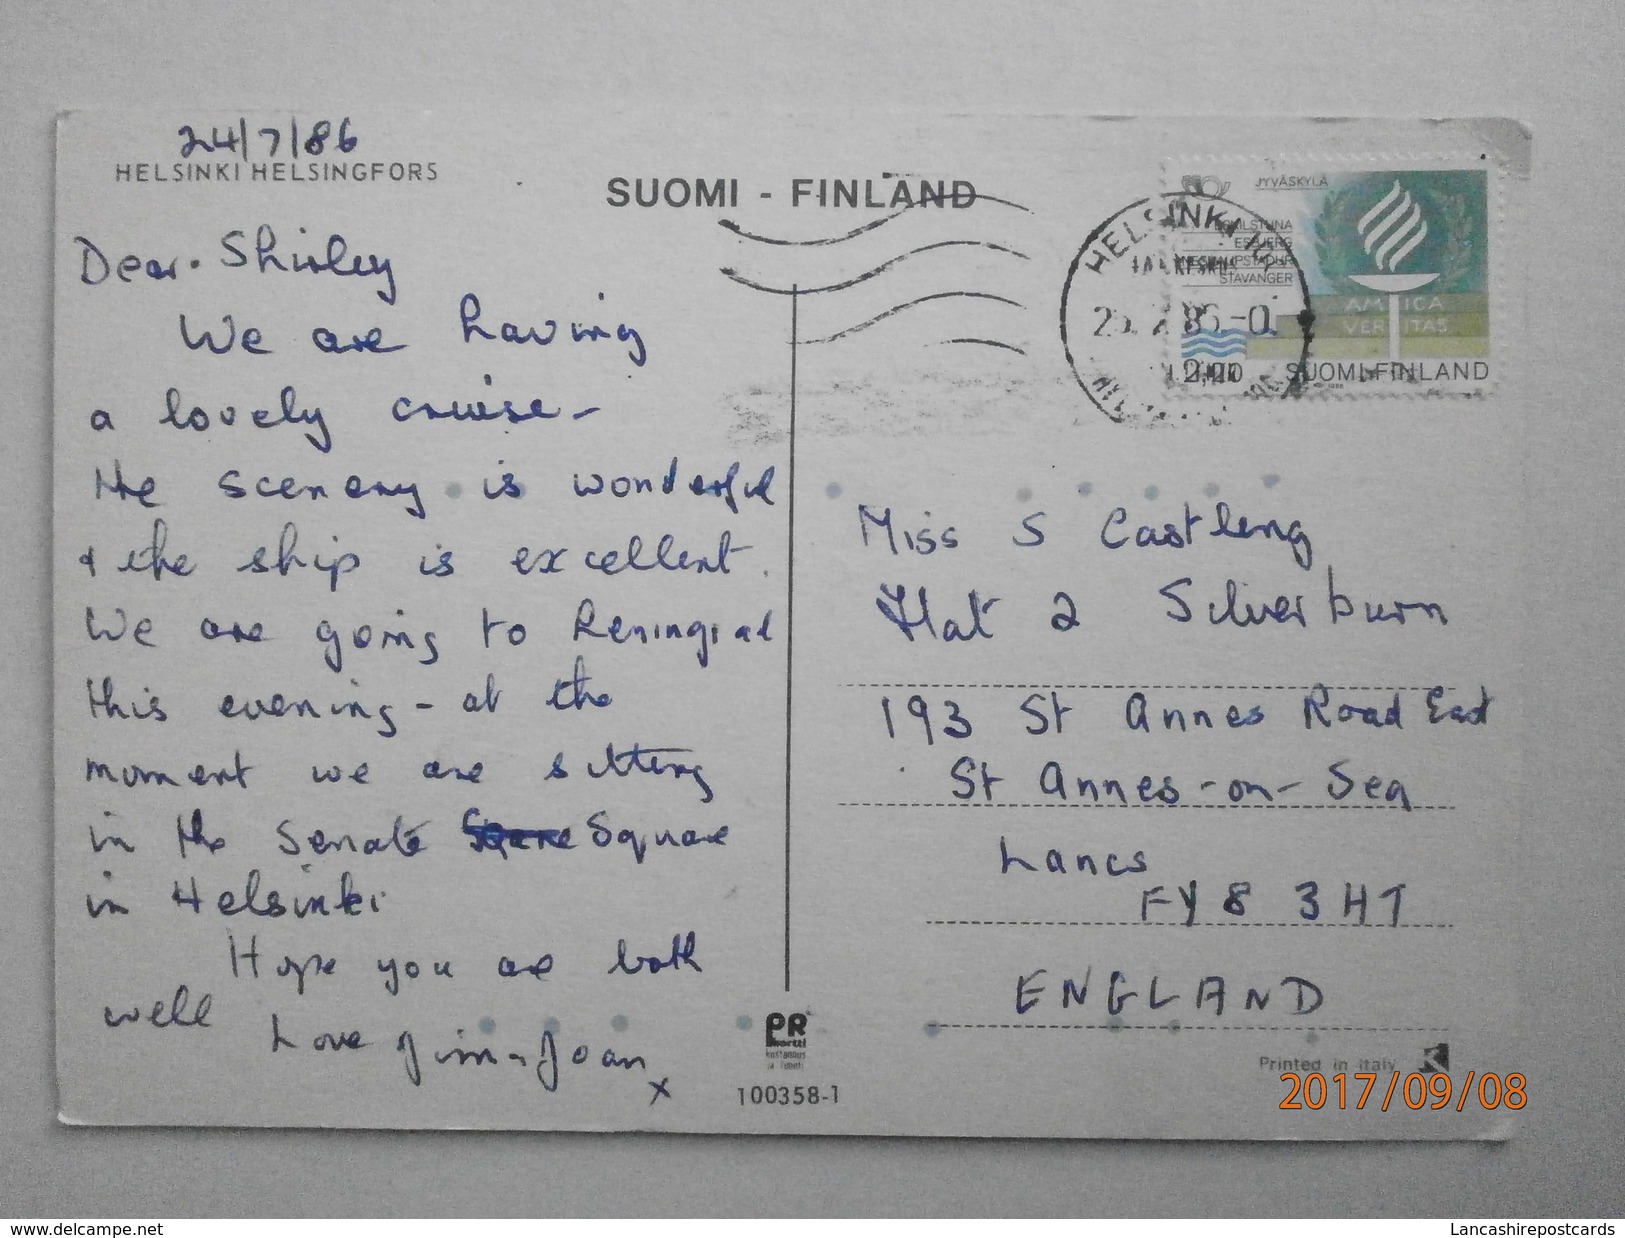 24/7/86
HELSINKI HELSINGFORS
SUOMI - FINLAND
Dear Shirley
We are having
a lovely cruise -
the scenery is wonderful
& the ship is excellent.
We are going to Leningrad
this evening - at the
moment we are sitting
in the Senate Square
in Helsinki
Hope you are both
well
Love Jim & Joan
x
JYVÄSKYLÄ
ESKILSTUNA
ESBJERG
STAVANGER
AMICA
VERITAS
SUOMI-FINLAND
HELSINKI
Miss S Castleng
Flat 2 Silverburn
193 St Annes Road East
St Annes-on-Sea
Lancs
FY8 3HT
ENGLAND
PR
100358-1
Printed in Italy
2017/09/08
www.delcampe.net
Lancashirepostcards